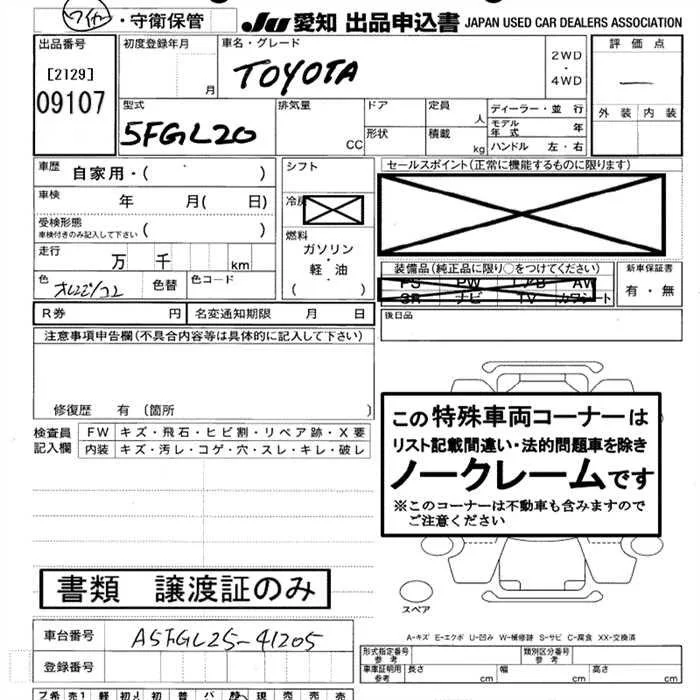 ワイヤー・守衛保管 Ju 愛知 出品申込書 JAPAN USED CAR DEALERS ASSOCIATION
出品番号 初度登録年月 車名・グレード 評価点
[2129] 月 TOYOTA 2WD・4WD ―
09107 外装 内装
型式 排気量 ドア 定員 人 ディーラー・並行
5FGL20 CC 形状 積載 kg モデル年式 年
ハンドル 左・右
車歴 自家用・( ) シフト セールスポイント(正常に機能するものに限ります)
車検 年 月( 日) 冷房
受検形態 ( )
車検付きのみ記入して下さい
燃料
走行 万 千 km ガソリン・軽油 ( ) 装備品(純正品に限り○をつけてください) 新車保証書
PS PW エアB AW 有・無
色 色替 色コード SR ナビ TV カワシート
R券 円 名変通知期限 月 日 後日品
注意事項申告欄(不具合内容等は具体的に記入して下さい)
修復歴 有 (箇所 )
検査員記入欄 FW キズ・飛石・ヒビ割・リペア跡・X要
内装 キズ・汚レ・コゲ・穴・スレ・キレ・破レ
この特殊車両コーナーは
リスト記載間違い・法的問題車を除き
ノークレームです
※このコーナーは不動車も含みますので
ご注意ください
書類 譲渡証のみ
スペア
A-キズ E-エクボ U-凹み W-補修跡 S-サビ C-腐食 XX-交換済
車台番号 A5FGL25-41205
登録番号
形式指定番号 参考 類別区分番号 参考
車車証明用 参考 長さ 幅 高さ